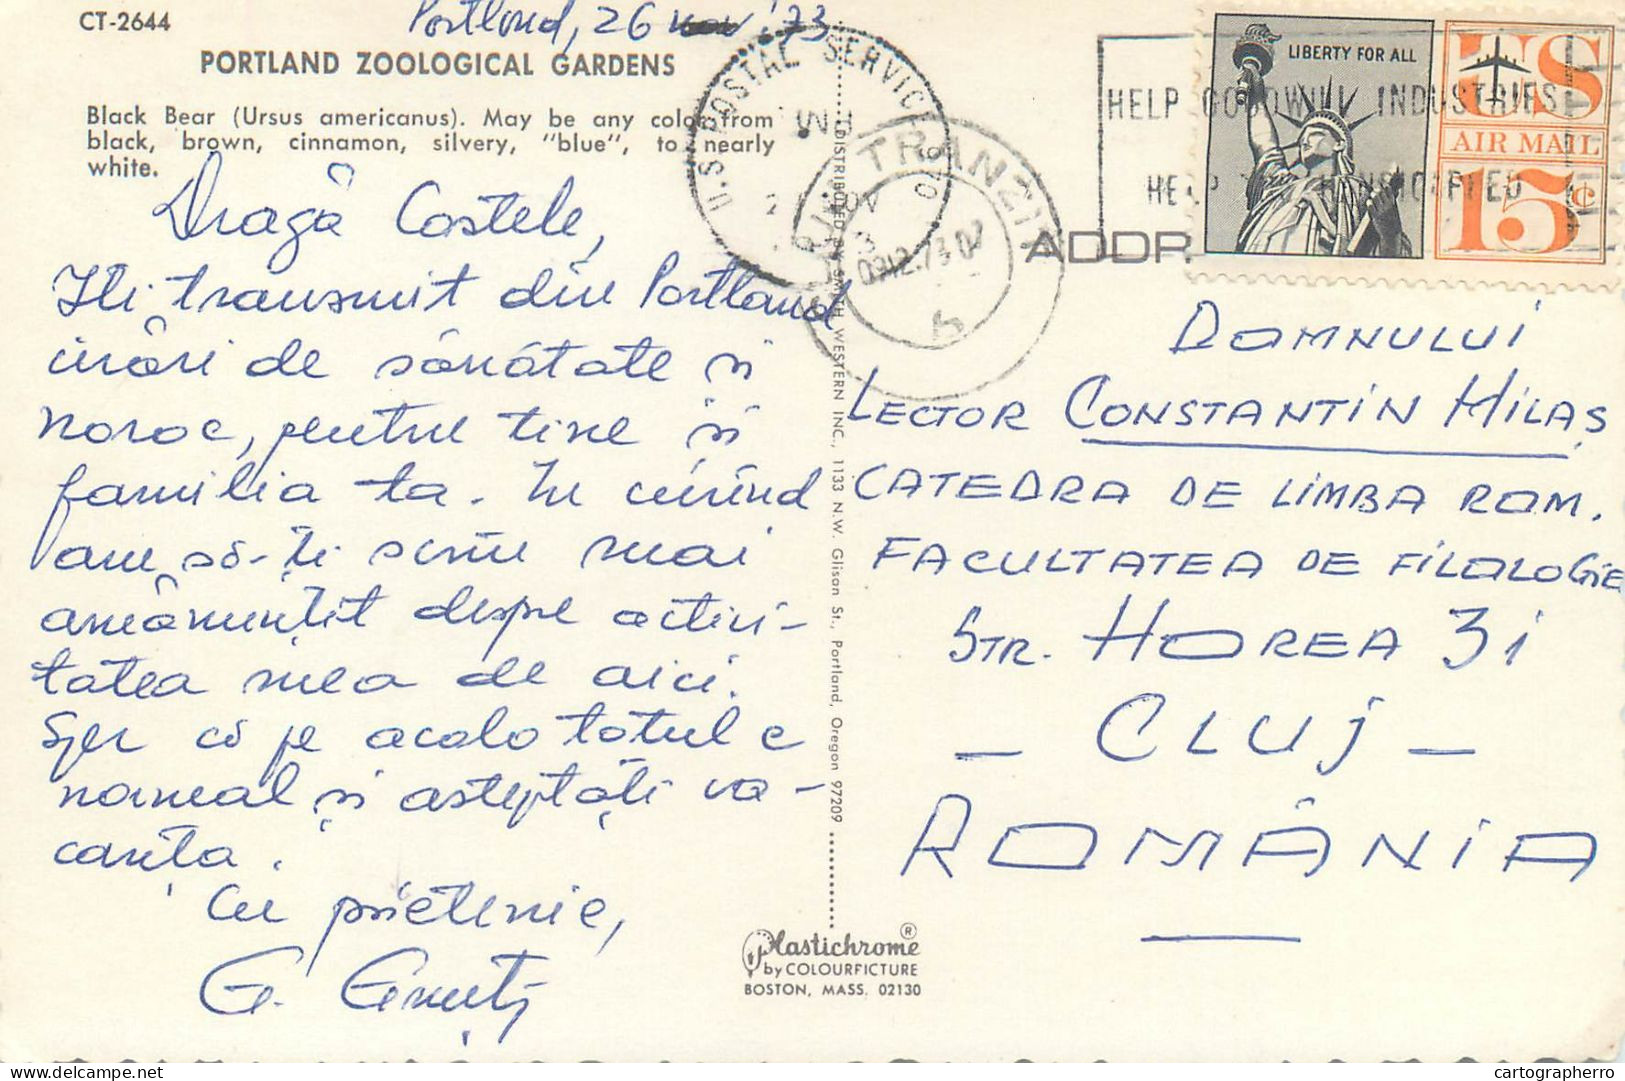 CT-2644
Portland, 26 nov '73
PORTLAND ZOOLOGICAL GARDENS
Black Bear (Ursus americanus). May be any color from
black, brown, cinnamon, silvery, "blue", to nearly
white.
Dragă Costele,
Îți transmit din Portland
urări de sănătate și
noroc, pentru tine și
familia ta. În curînd
am să-ți scriu mai
amănunțit despre activi-
tatea mea de aici.
Sper că pe acolo totul e
normal și aștepțăți va-
canța.
Cu prietenie,
G.
DISTRIBUTED BY SMITH WESTERN INC., 1133 N.W. Glisan St., Portland, Oregon 97209
Plastichrome ®
by COLOURPICTURE
BOSTON, MASS. 02130
U.S. POSTAL SERVICE 970
NOV
TRANZIT
CLUJ
03.12.73.07
HELP GOODWILL INDUSTRIES
HELP HANDICAPPED
LIBERTY FOR ALL
US
AIR MAIL
15¢
ADDR
DOMNULUI
LECTOR CONSTANTIN MILAȘ
CATEDRA DE LIMBA ROM.
FACULTATEA DE FILOLOGIE
STR. HOREA 31
— CLUJ —
ROMÂNIA
cartographerro